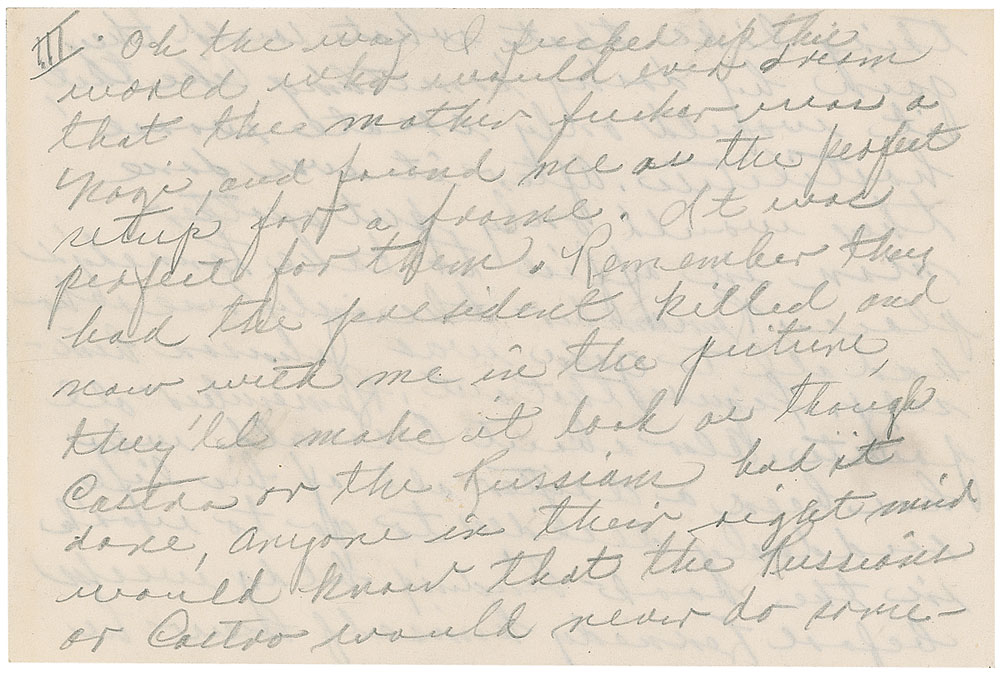 III. Oh the way I fucked up this
world, who would ever dream
that the mother fucker was a
Nazi, and found me as the perfect
setup for a frame. It was
perfect for them. Remember they
had the president killed, and
now with me in the picture,
they'll make it look as though
Castro or the Russians had it
done, Anyone in their right mind
would know that the Russians
or Castro would never do some-